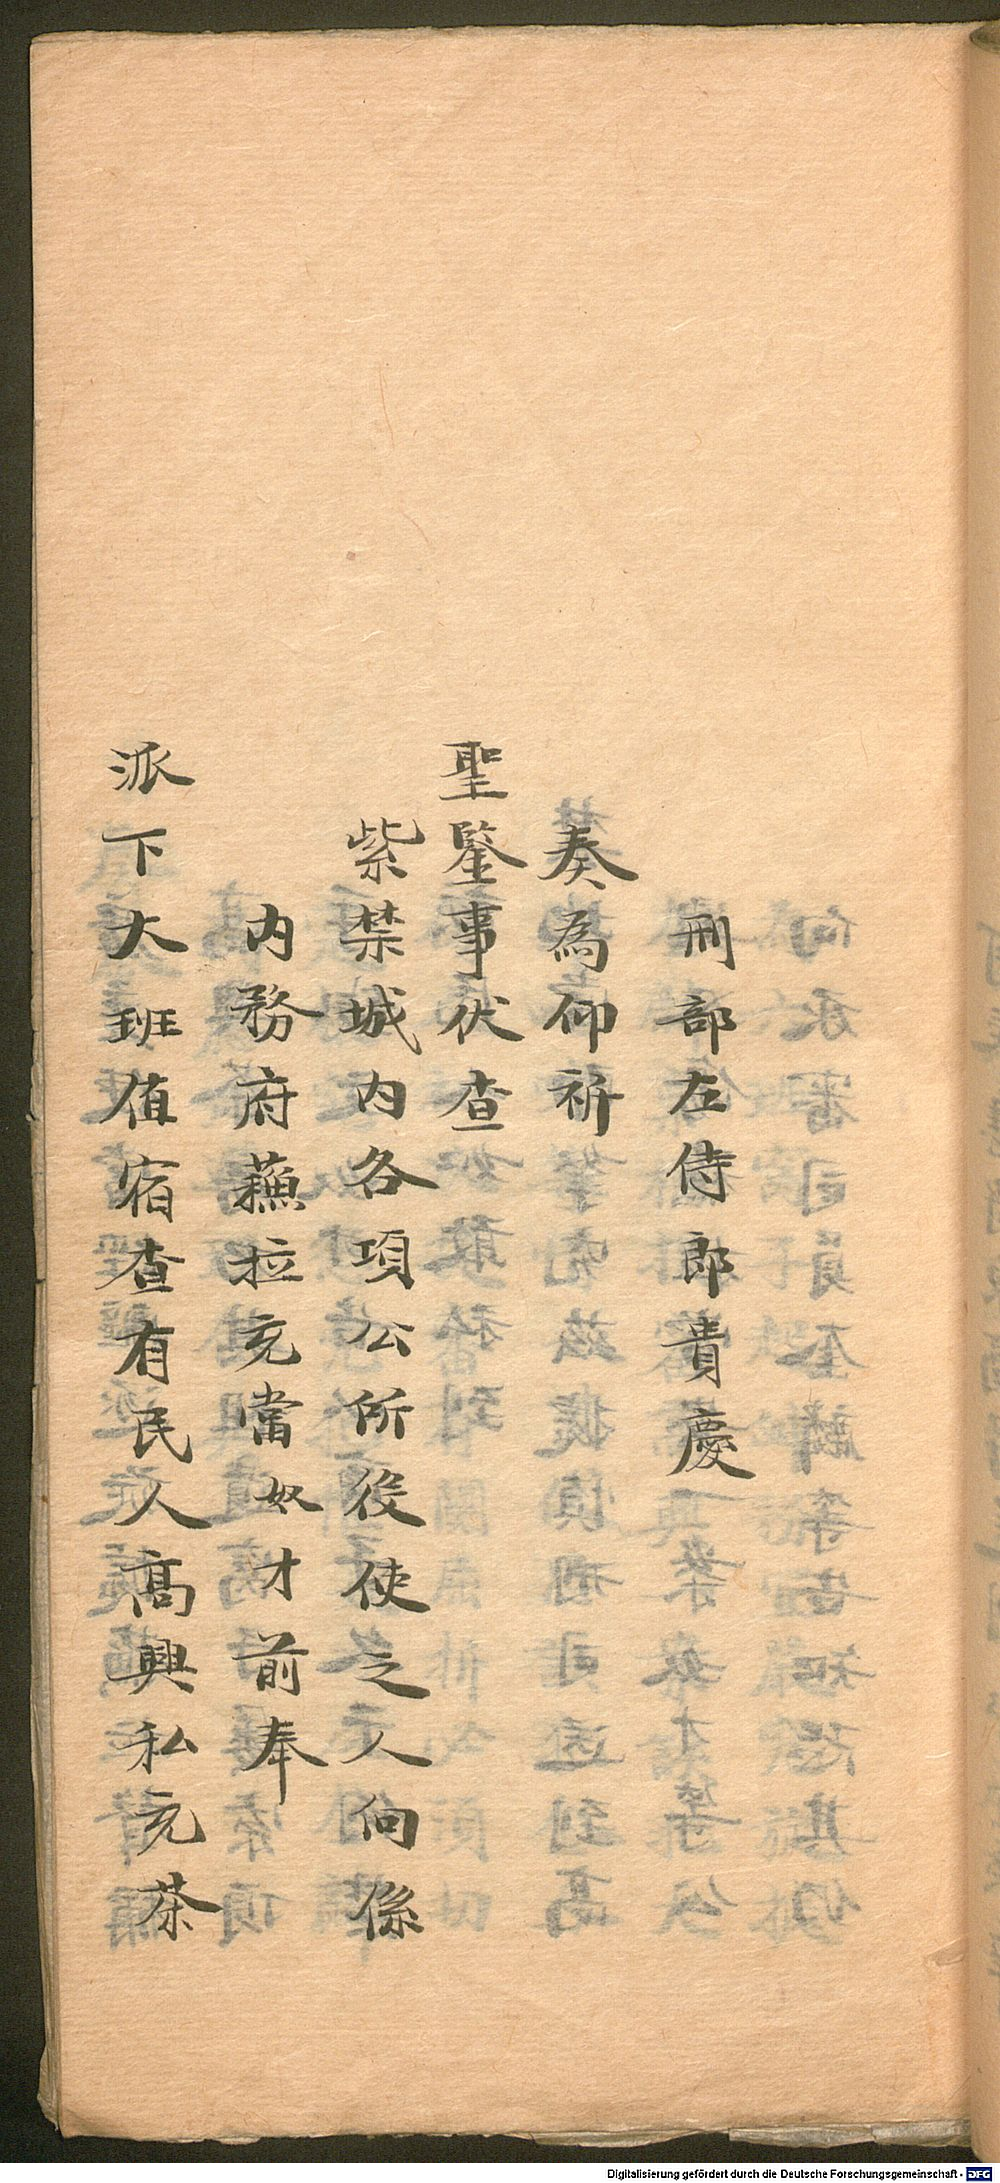 刑部左侍郎貴慶
奏為仰祈
聖鑒事伏查
紫禁城内各項公所役使之人向係
内務府蘓拉充當奴才前奉
派下大班值宿查有民人高興私充茶
Digitalisierung gefördert durch die Deutsche Forschungsgemeinschaft - DFG